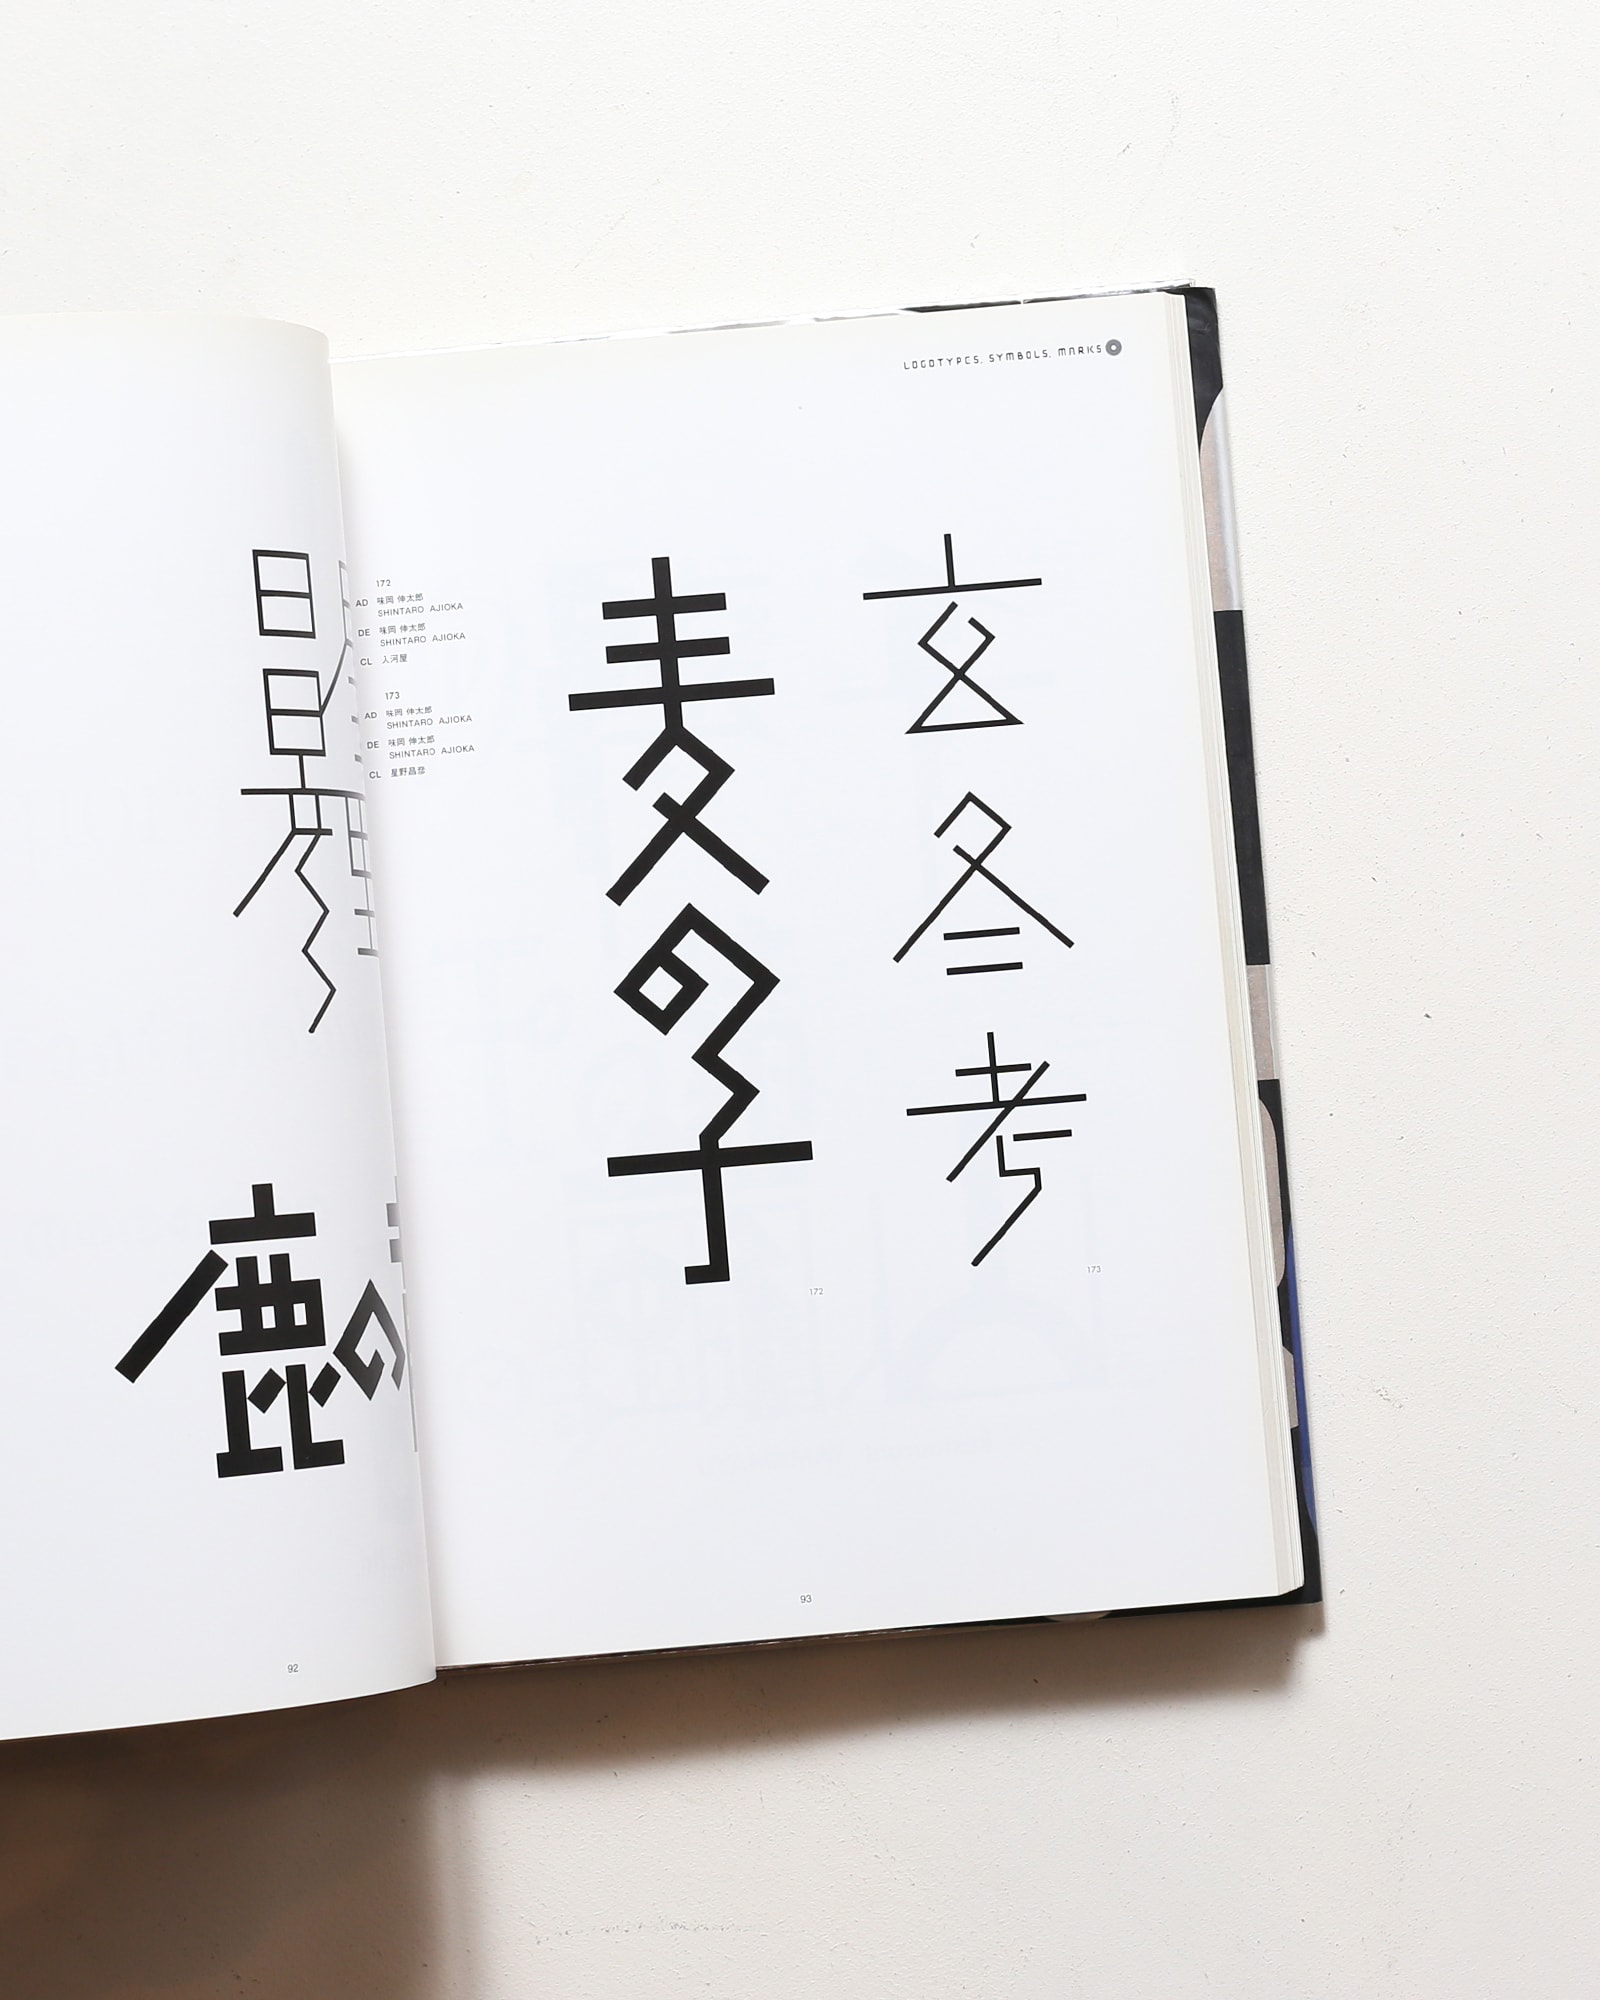 LOGOTYPES, SYMBOLS, MARKS
172
AD 味岡 伸太郎
SHINTARO AJIOKA
DE 味岡 伸太郎
SHINTARO AJIOKA
CL 入河屋
173
AD 味岡 伸太郎
SHINTARO AJIOKA
DE 味岡 伸太郎
SHINTARO AJIOKA
CL 星野昌彦
玄冬考
173
麦の子
172
鹿の
92
93